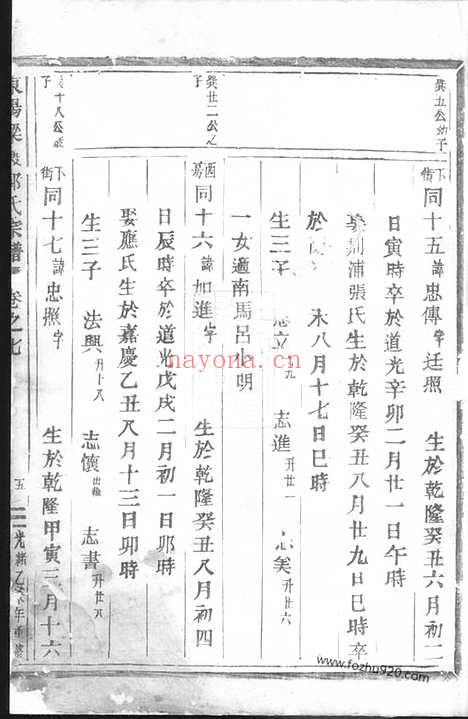 癸五公幼子
下街同十五諱忠傳字廷照 生於乾隆癸丑六月初二
日寅時卒於道光辛卯二月廿一日午時
娶荆浦張氏生於乾隆癸丑八月廿九日巳時卒
於 未八月十七日巳時
生三子 志立 九 志進升廿一 志美升廿六
一女適南馬呂小明
癸廿二公之子
同十六諱如進字 生於乾隆癸丑八月初四
日辰時卒於道光戊戌二月初一日卯時
娶應氏生於嘉慶乙丑八月十三日卯時
生三子 法興升十八 志懷出繼 志書升廿八
十八公 子
下街同十七諱忠照字 生於乾隆甲寅三月十六
東陽 郭氏宗譜 卷之七 五 光緒乙 年重
nayona.cn
www.fozhu920.com